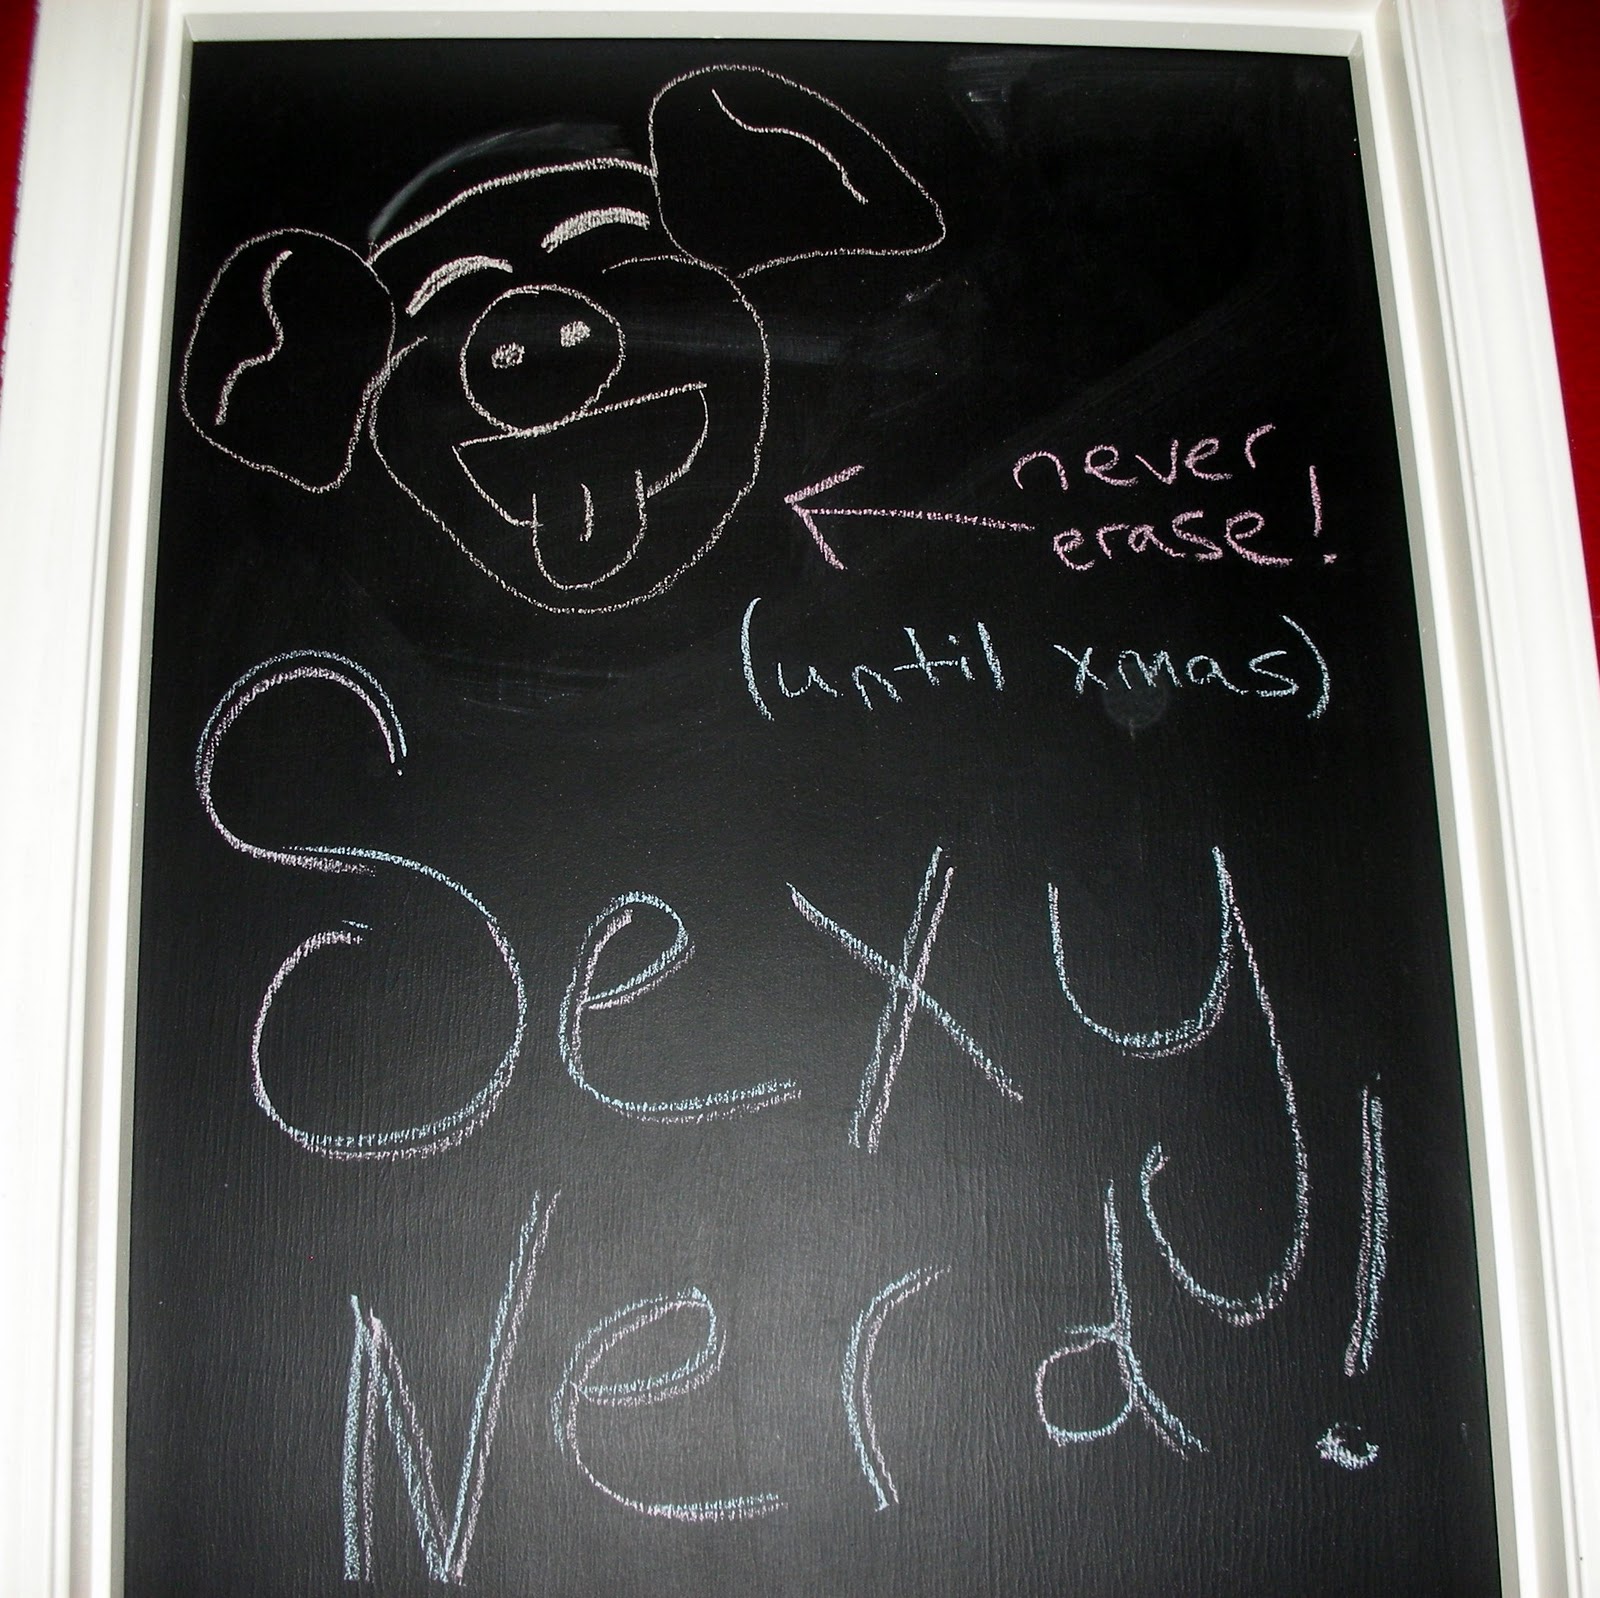 never
erase!
(until xmas)
Sexy
Nerd!